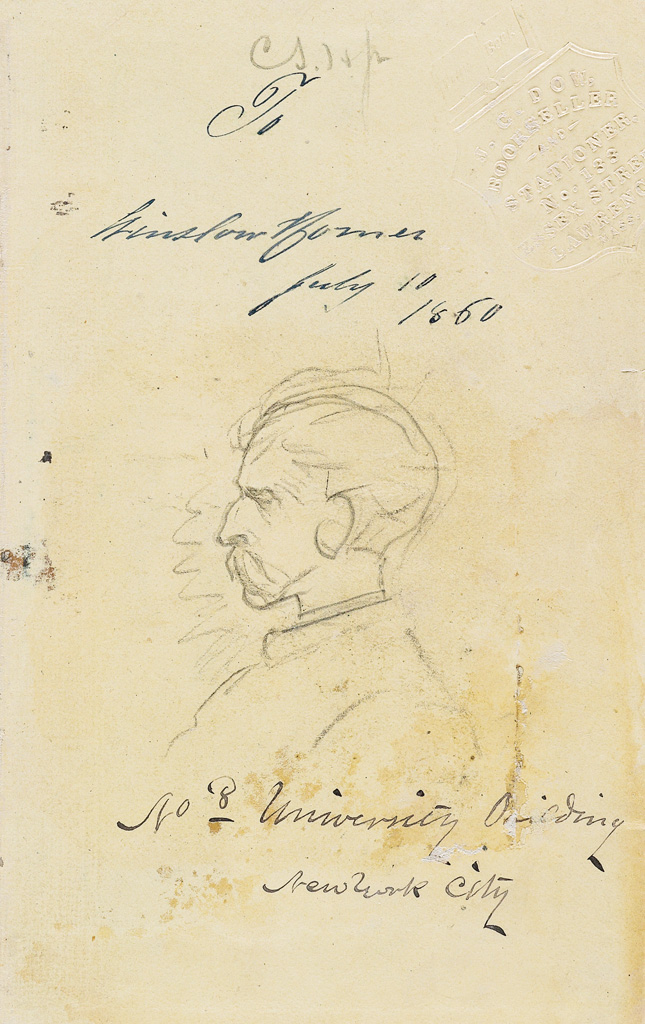 To
J. C. DOW,
BOOKSELLER
AND
STATIONER,
No. 188
ESSEX STREET
LAWRENCE
MASS.
Winslow Homer
July 10
1860
No 8 University Building
New York City